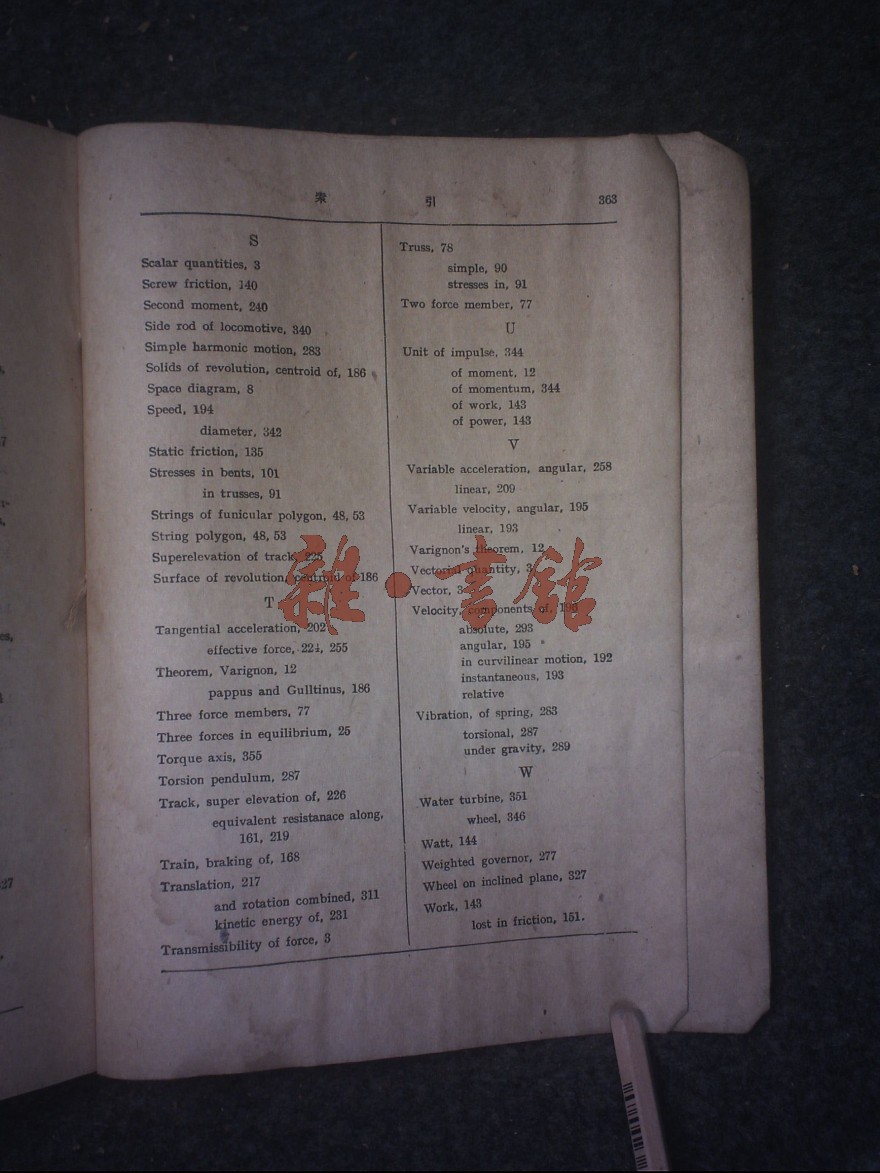 索 引 363
S
Scalar quantities, 3
Screw friction, 140
Second moment, 240
Side rod of locomotive, 340
Simple harmonic motion, 283
Solids of revolution, centroid of, 186
Space diagram, 8
Speed, 194
diameter, 342
Static friction, 135
Stresses in bents, 101
in trusses, 91
Strings of funicular polygon, 48, 53
String polygon, 48, 53
Superelevation of track, 225
Surface of revolution, centroid of 186
T
Tangential acceleration, 202
effective force, 224, 255
Theorem, Varignon, 12
pappus and Gulltinus, 186
Three force members, 77
Three forces in equilibrium, 25
Torque axis, 355
Torsion pendulum, 287
Track, super elevation of, 226
equivalent resistanace along,
161, 219
Train, braking of, 168
Translation, 217
and rotation combined, 311
kinetic energy of, 231
Transmissibility of force, 3
Truss, 78
simple, 90
stresses in, 91
Two force member, 77
U
Unit of impulse, 344
of moment, 12
of momentum, 344
of work, 143
of power, 143
V
Variable acceleration, angular, 258
linear, 209
Variable velocity, angular, 195
linear, 193
Varignon's theorem, 12
Vectorial quantity, 3
Vector, 3
Velocity, components of,
absolute, 293
angular, 195
in curvilinear motion, 192
instantaneous, 193
relative
Vibration, of spring, 283
torsional, 287
under gravity, 289
W
Water turbine, 351
wheel, 346
Watt, 144
Weighted governor, 277
Wheel on inclined plane, 327
Work, 143
lost in friction, 151.
雜·書館